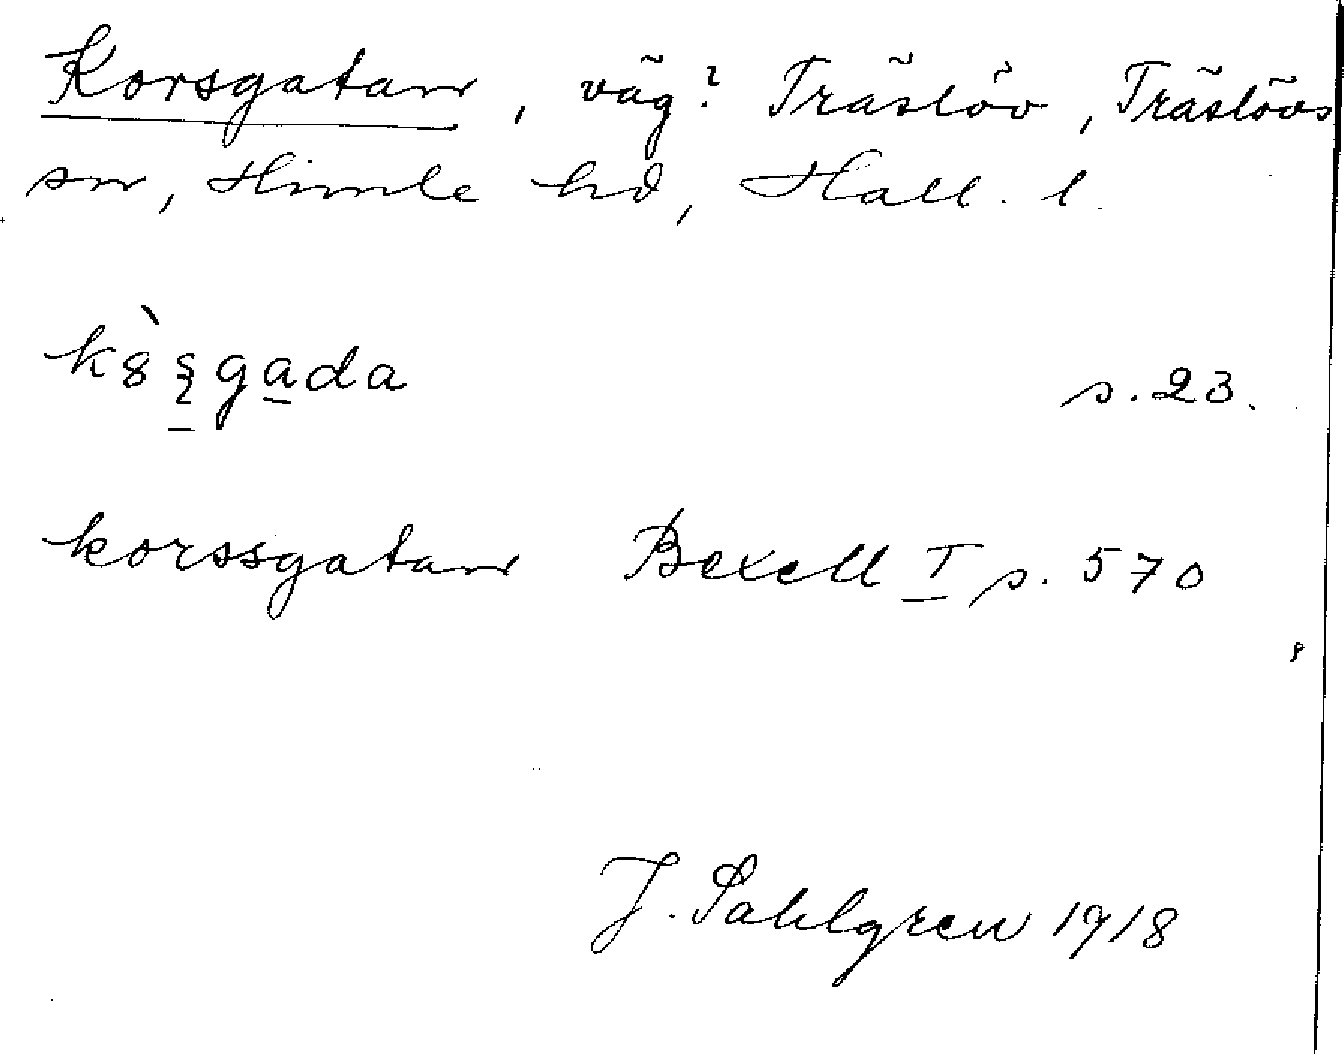 Korsgatan, väg? Träslöv, Träslövs
sn, Himle hd, Hall. l.
k8̀ꞩga̲da s. 23.
korssgatan Bexell I s. 570
J. Sahlgren 1918